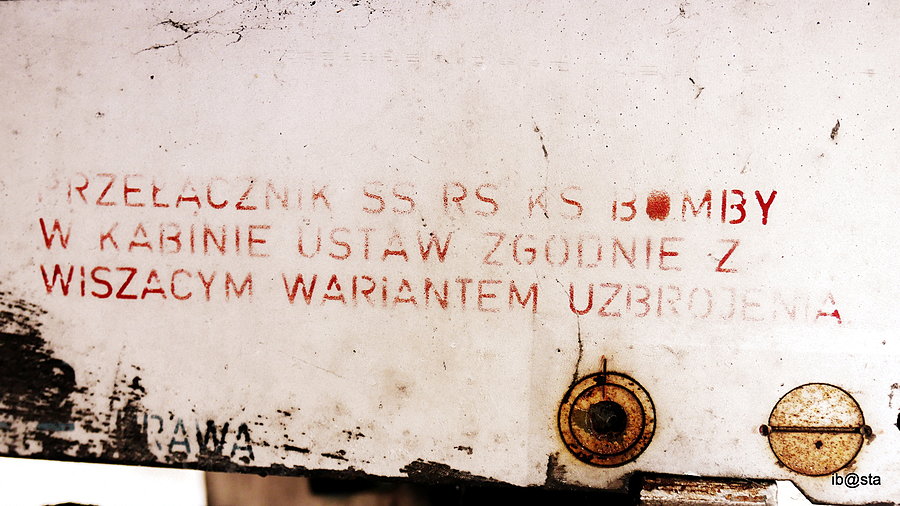 PRZEŁACZNIK SS RS KS BOMBY
W KABINIE USTAW ZGODNIE Z
WISZACYM WARIANTEM UZBROJENIA
RAWA
ib@sta